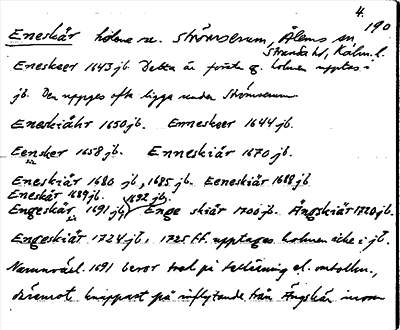 4.
190
Eneskär holme sv. Strömserum, Ålems sn
Stranda hd, Kalm. l.
Eneskeer 1643 jb Detta är första g. holmen upptas i
jb. Den uppges ofta ligga under Strömserum
Eneskiähr 1650 jb. Enneskeer 1644 jb.
Eensker 1658 jb. Enneskiär 1670 jb.
Eneskiär 1680 jb, 1685 jb. Eeneskiär 1688 jb
Eneskär 1689 jb. 1692 jb.
Engeskär 1691 jb, Enge skiär 1700 jb. Ängskiär 1720 jb.
Engeskiär 1724 jb, 1725 ff. upptages holmen icke i jb.
Namnväxl. 1691 beror trol på felläsning el. omtolkn.,
däremot knappast på inflytande från Ängskär inom